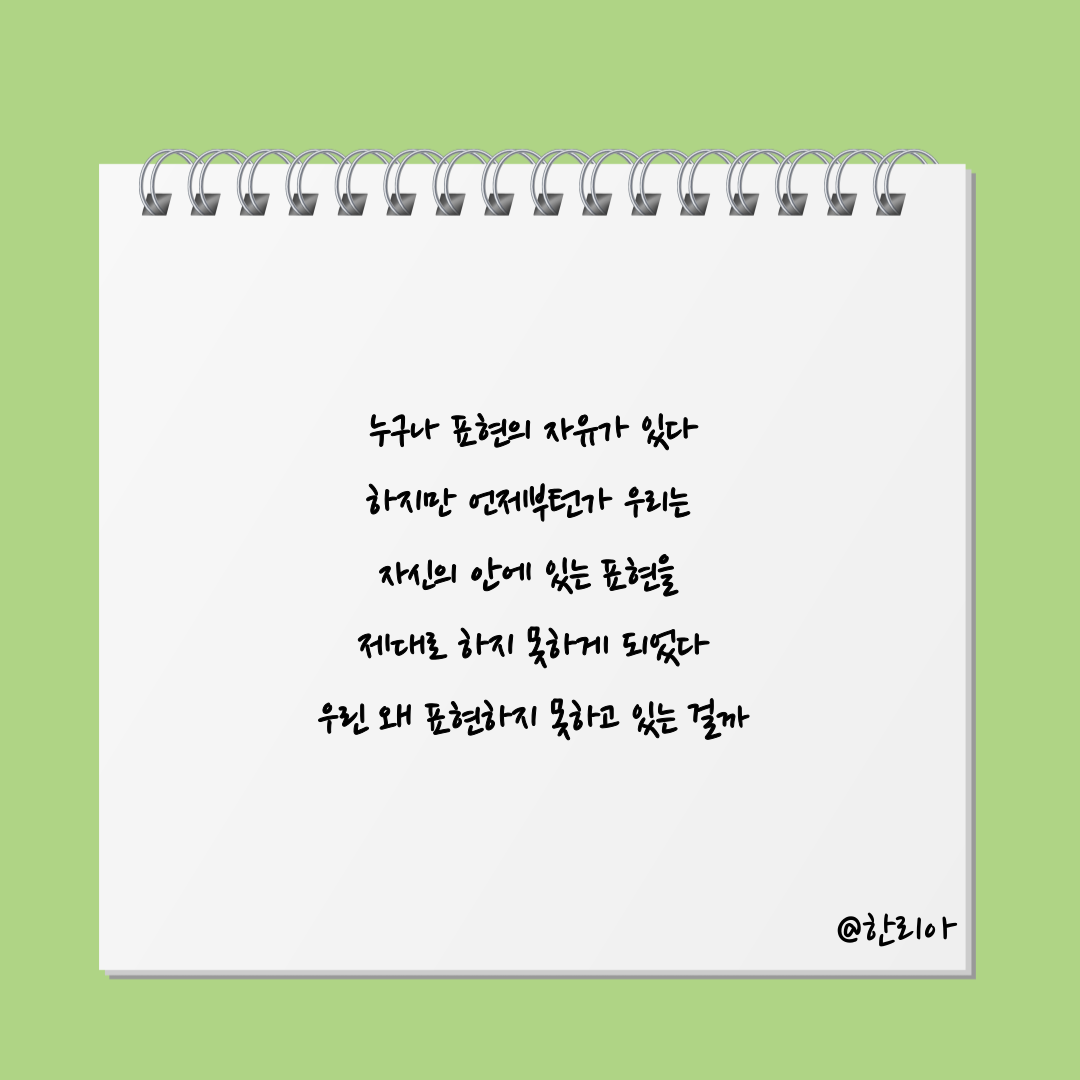 누구나 표현의 자유가 있다
하지만 언제부턴가 우리는
자신의 안에 있는 표현을
제대로 하지 못하게 되었다
우린 왜 표현하지 못하고 있는 걸까
@한리아